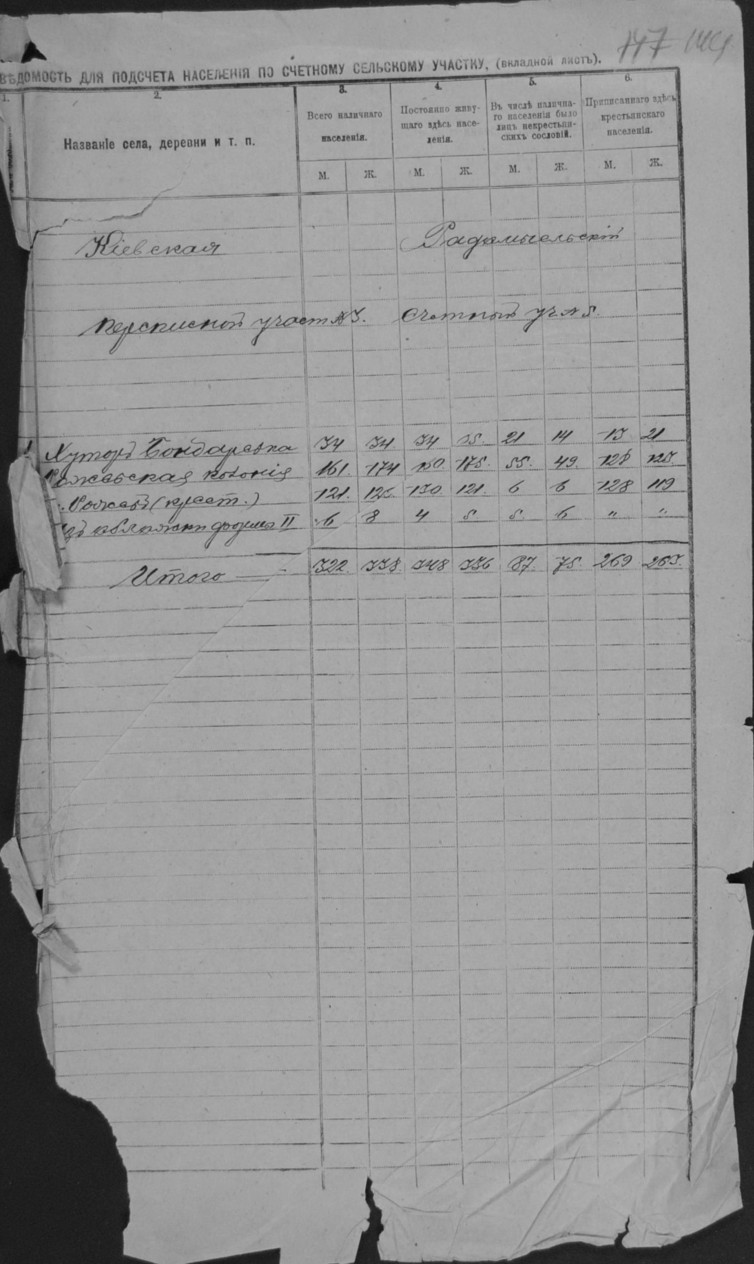 147 144
ВѢДОМОСТЬ ДЛЯ ПОДСЧЕТА НАСЕЛЕНІЯ ПО СЧЕТНОМУ СЕЛЬСКОМУ УЧАСТКУ, (вкладной листъ).
1. 2. 3. 4. 5. 6.
Названіе села, деревни и т. п.
Всего наличнаго населенія.
Постоянно живущаго здѣсь населенія.
Въ числѣ наличнаго населенія было лицъ некрестьянскихъ сословій.
Приписаннаго здѣсь крестьянскаго населенія.
М. Ж. М. Ж. М. Ж. М. Ж.
Кіевская Радомысльскій
Переписной участ № 3. Счетный уч № 5.
Хуторъ Бондаревка 34 34 34 35. 21 14 13. 21
колонія 161. 174 180. 175. 55. 49. 128 125.
(крест.) 121. 122. 130. 121. 6 6 128 119
обложки форма II 6 8 4 5 5. 6 " "
Итого — 322. 338. 348 336 87. 75. 269 265.